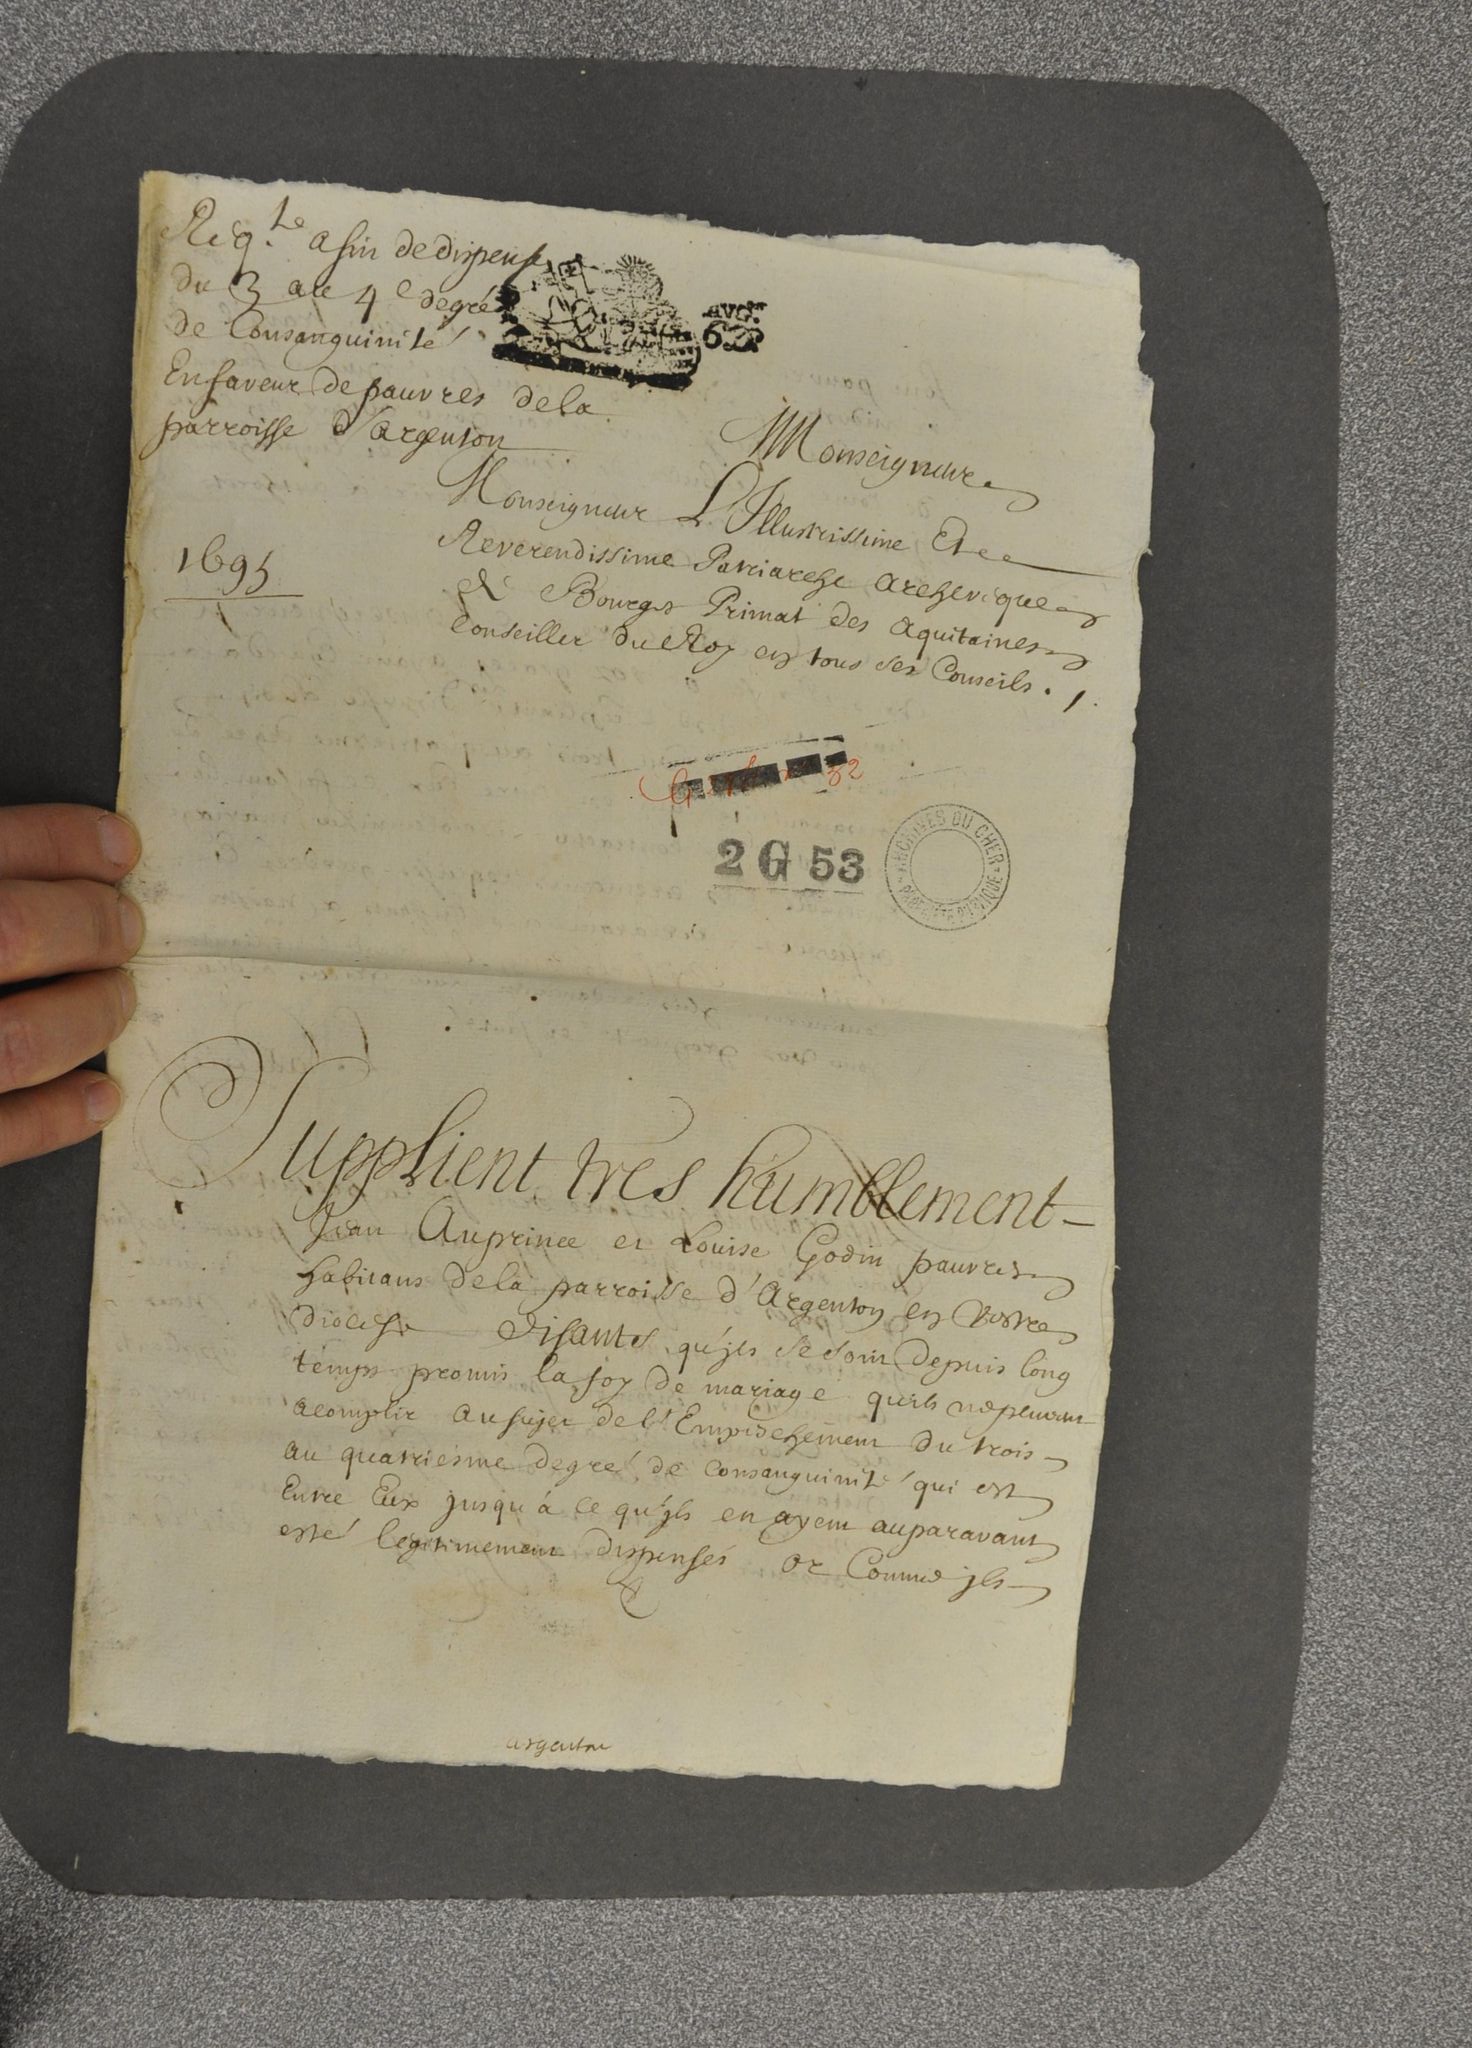 Reqte afin de dispense
du 3 au 4e degré
de Consanguinité
En faveur de pauvres de la
parroisse d'argenton
AVG.
6 D
1695
Monseigneur
Monseigneur L'Illustrissime Et
Reverendissime Patriarche archevêque
de Bourges Primat des aquitaines
Conseiller du Roy en tous ses Conseils.
32
2 G 53
ARCHIVES DU CHER
Supplient tres humblement
Jean Auprince et Louise Godin pauvres
habitans de la parroisse d'Argenton en Vostre
Diocese disants qu'jls se sont depuis long
temps promis la foy de mariage quils ne peuvent
acomplir au sujet de l'Empeschement du trois
au quatriesme degré de consanguinité qui est
Entre Eux jusqu'à ce qu'jls en ayent auparavant
esté legitimement dispensés or Comme jls
argenton